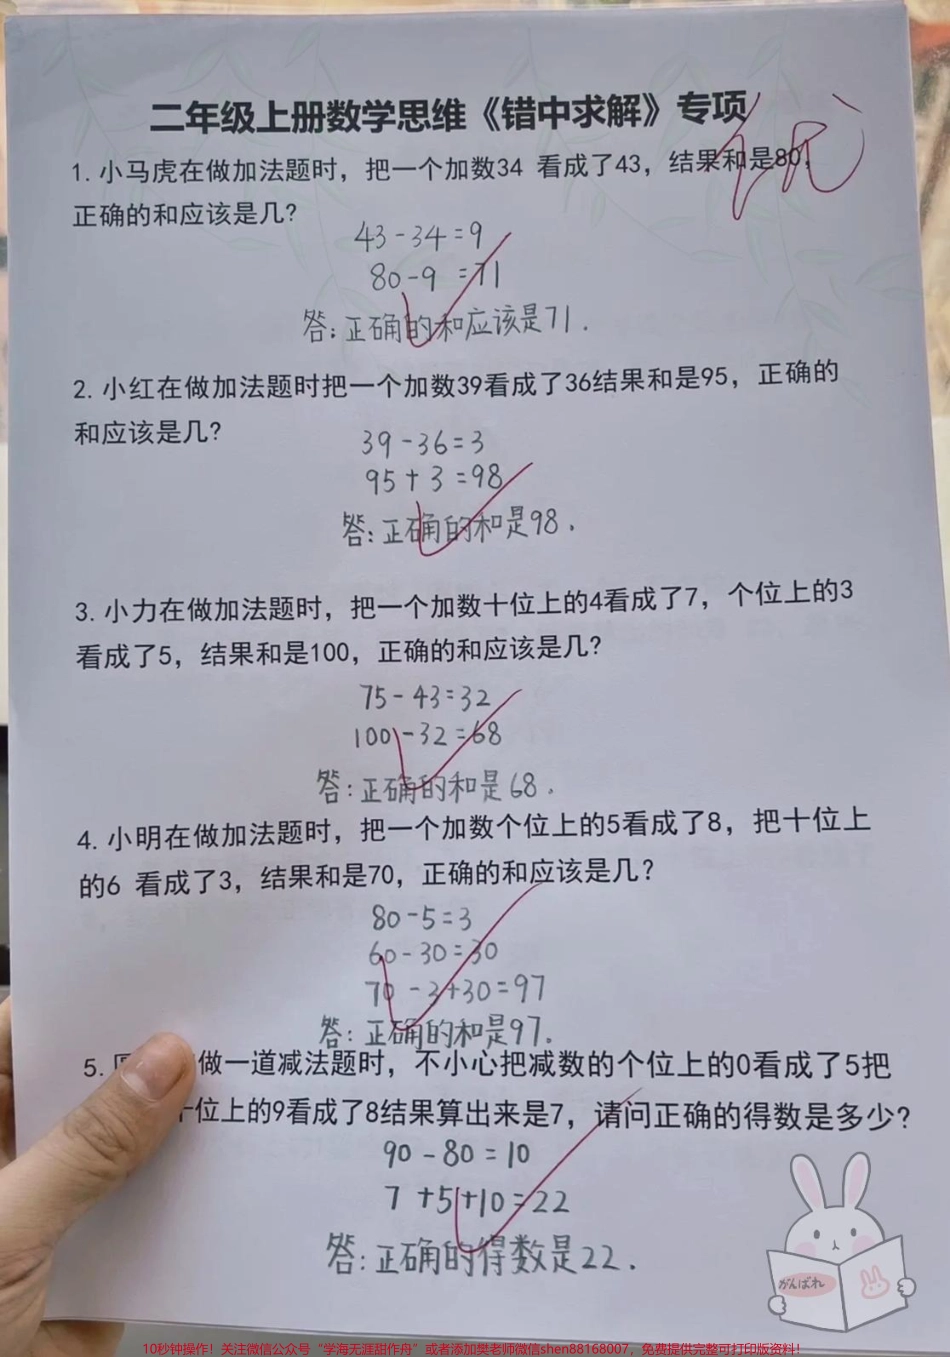 二年级上册数学思维《错中求解》专项
优
1.小马虎在做加法题时，把一个加数34 看成了43，结果和是80，
正确的和应该是几?
43-34=9
80-9 =71
答:正确的和应该是71.
2.小红在做加法题时把一个加数39看成了36结果和是95，正确的
和应该是几?
39-36=3
95+3=98
答:正确的和是98.
3.小力在做加法题时，把一个加数十位上的4看成了7，个位上的3
看成了5，结果和是100，正确的和应该是几?
75-43=32
100-32=68
答:正确的和是68.
4.小明在做加法题时，把一个加数个位上的5看成了8，把十位上
的6 看成了3，结果和是70，正确的和应该是几?
80-5=3
60-30=30
70-3+30=97
答:正确的和是97.
5.做一道减法题时，不小心把减数的个位上的0看成了5把
十位上的9看成了8结果算出来是7，请问正确的得数是多少?
90-80=10
7+5+10=22
答:正确的得数是22.
がんばれ
10秒钟操作！关注微信公众号“学海无涯甜作舟”或者添加樊老师微信shen88168007，免费提供完整可打印版资料！